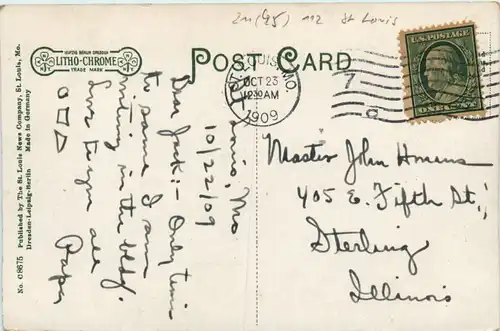 2M (95) 112 St Louis
LEIPZIG BERLIN DRESDEN
LITHO-CHROME
TRADE MARK
POST CARD
ST. LOUIS, MO.
OCT 23
12 30 AM
1909
7
U.S. POSTAGE
ONE CENT
No. C8675 Published by The St. Louis News Company, St. Louis, Mo.
Dresden-Leipzig-Berlin Made in Germany
St Louis, Mo
10/22/09
Dear Jack:- Only time
to say I am
writing in the bldg.
Love to you all
Papa
Master John Homans
405 E. Fifth St.,
Sterling
Illinois